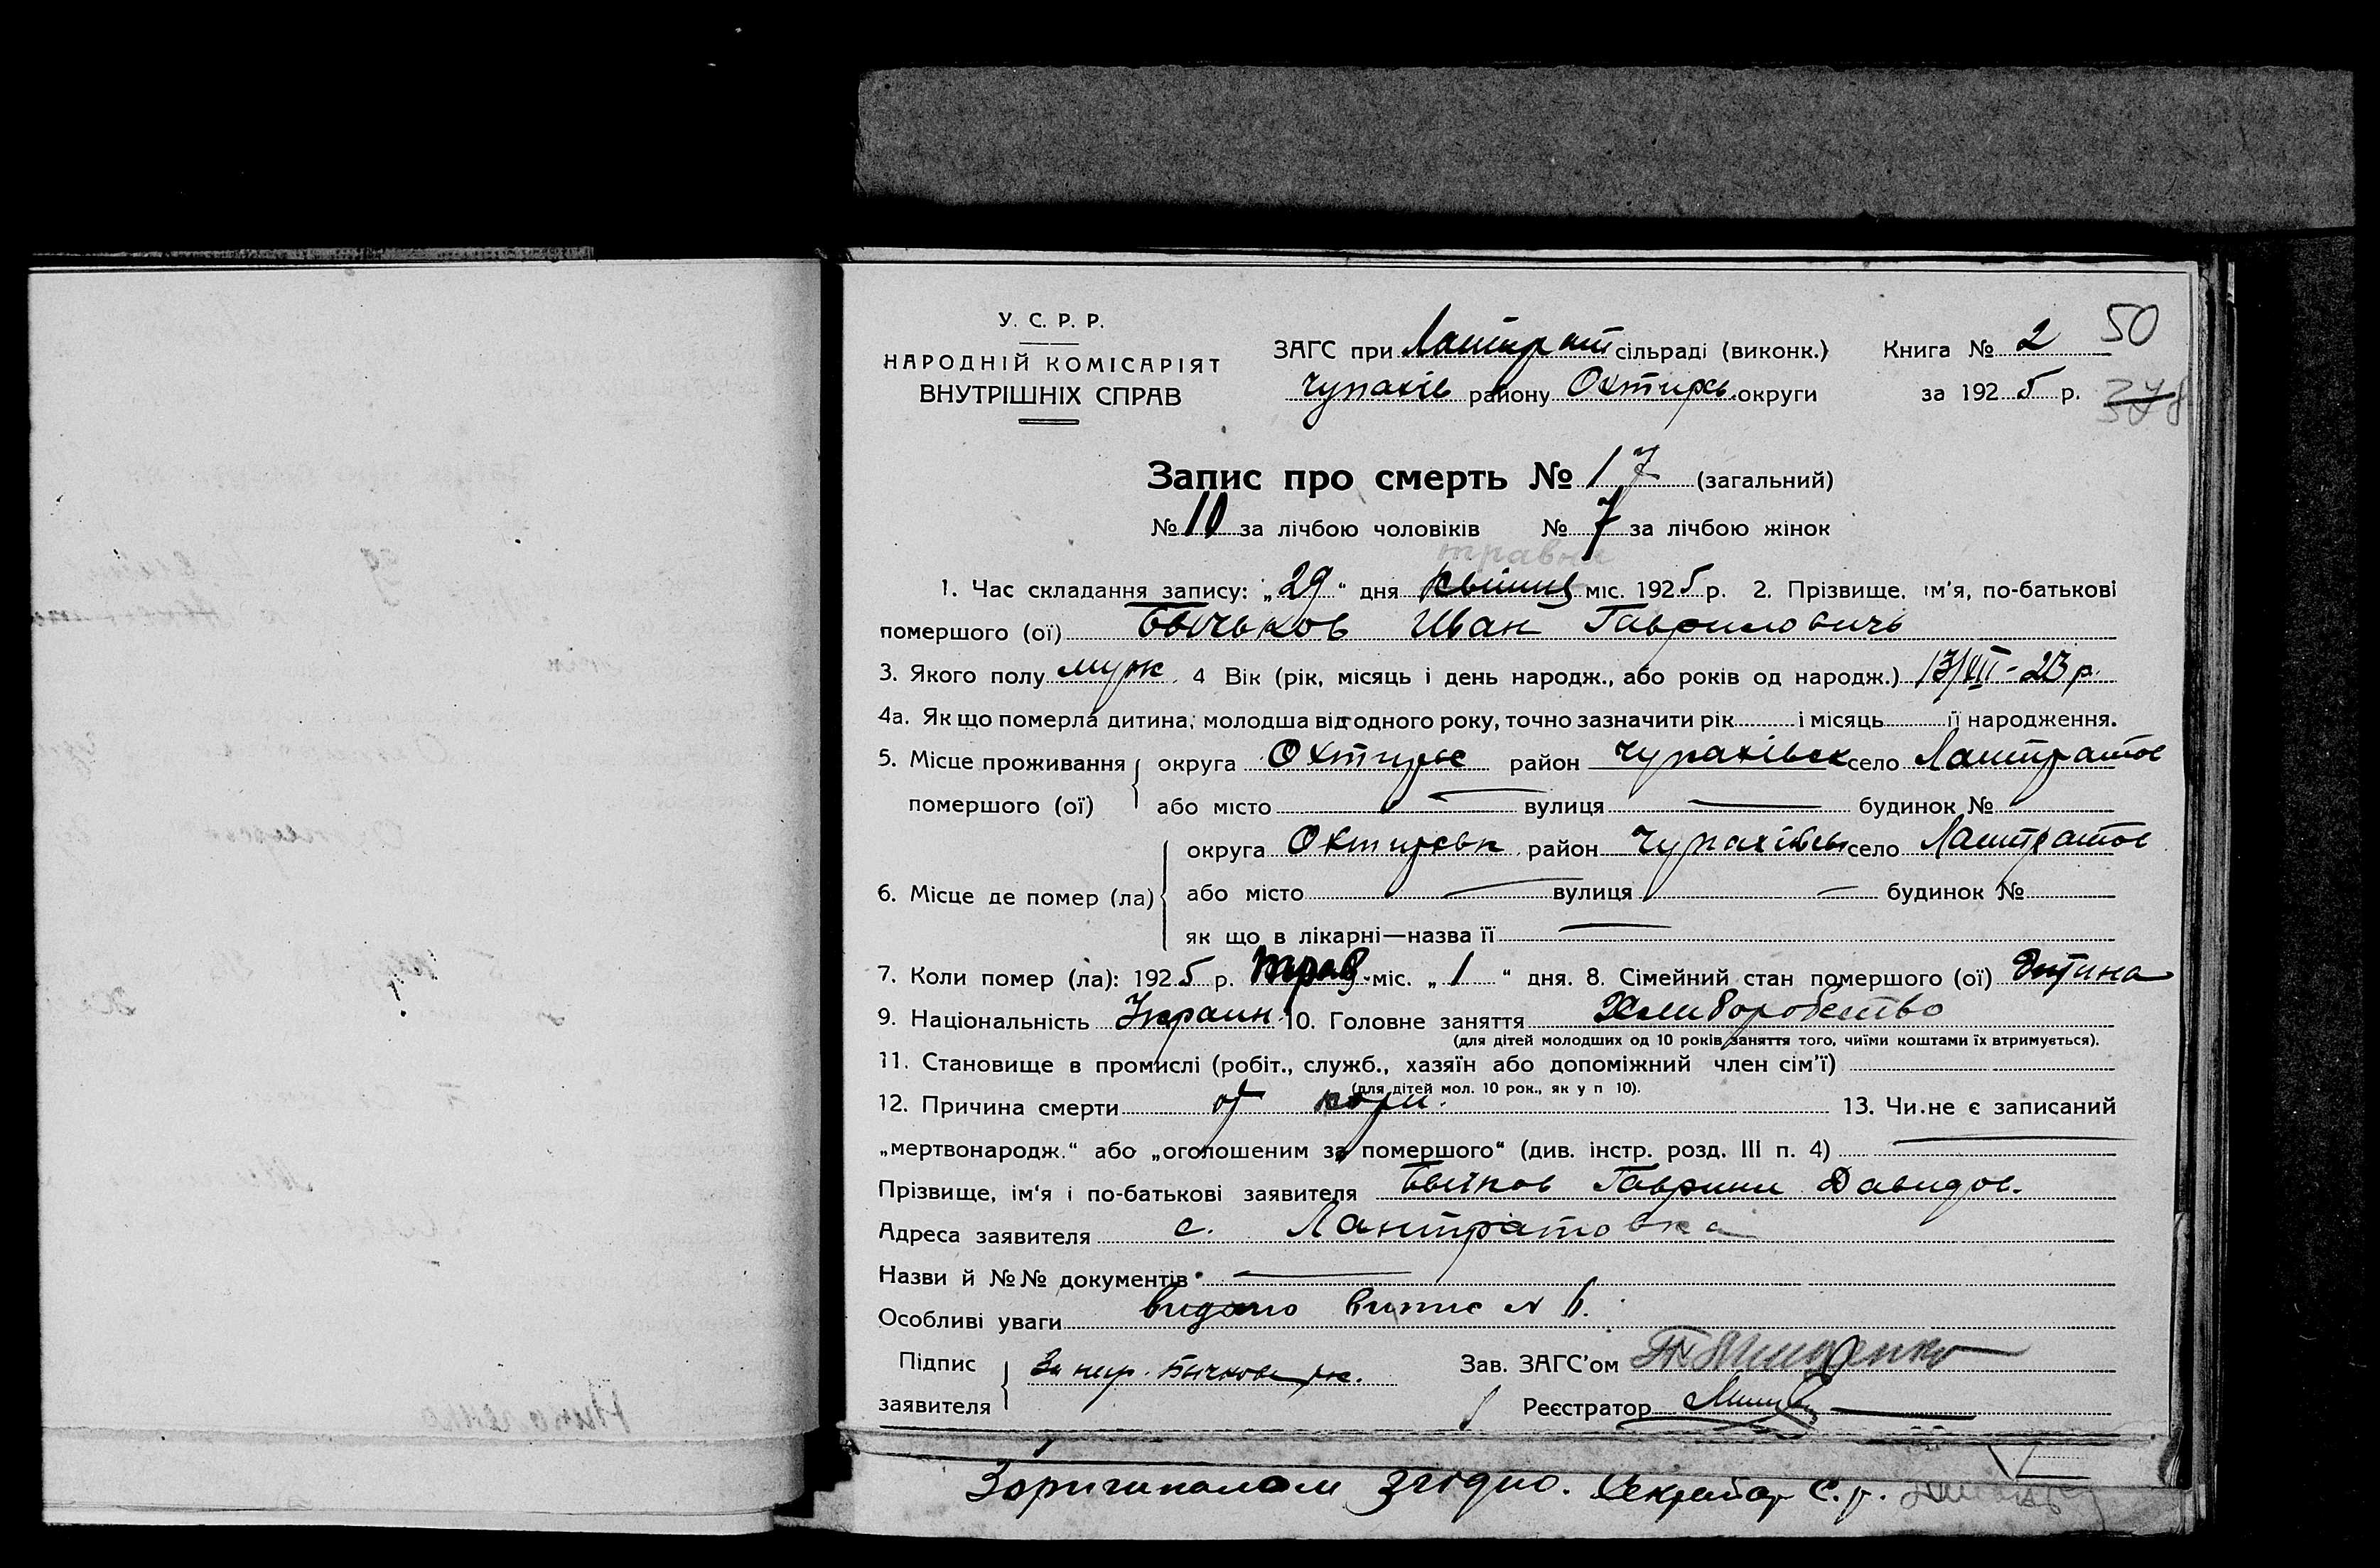 У. С. Р. Р.
НАРОДНІЙ КОМІСАРІЯТ
ВНУТРІШНІХ СПРАВ
ЗАГС при Лантрат сільраді (виконк.) Книга № 2 50
Чупахів району Охтирсь. округи за 1925 р. 378
Запис про смерть № 17 (загальний)
№ 10 за лічбою чоловіків № 7 за лічбою жінок
травня
1. Час складання запису: „29“ дня квітня міс. 1925 р. 2. Прізвище, ім'я, по-батькові
помершого (ої) Бычьков Иван Гаврилович
3. Якого полу муж. 4 Вік (рік, місяць і день народж., або років од народж.) 13/VII-23 р.
4а. Як що померла дитина, молодша від одного року, точно зазначити рік і місяць її народження.
5. Місце проживання округа Охтирьс район Чупахівськ село Лантратов
помершого (ої) або місто вулиця будинок №
округа Охтирськ район Чупахівськ село Лантратов
6. Місце де помер (ла) або місто вулиця будинок №
як що в лікарні—назва її
7. Коли помер (ла): 1925 р. трав. міс. „1“ дня. 8. Сімейний стан помершого (ої) дитина
9. Національність Украин. 10. Головне заняття Хлиборобство
(для дітей молодших од 10 років заняття того, чиїми коштами їх втримується).
11. Становище в промислі (робіт., служб., хазяїн або допоміжний член сім'ї)
(для дітей мол. 10 рок., як у п 10).
12. Причина смерти от кори. 13. Чи не є записаний
„мертвонародж.“ або „оголошеним за помершого“ (див. інстр. розд. III п. 4)
Прізвище, ім'я і по-батькові заявителя Бычков Гаврило Давидов.
Адреса заявителя с. Лантратовка
Назви й №№ документів
Особливі уваги видано випис N 6.
Підпис За негр. Бычкова рс. Зав. ЗАГС'ом
заявителя Реєстратор
З оригиналом згідно. Секретар С. р.